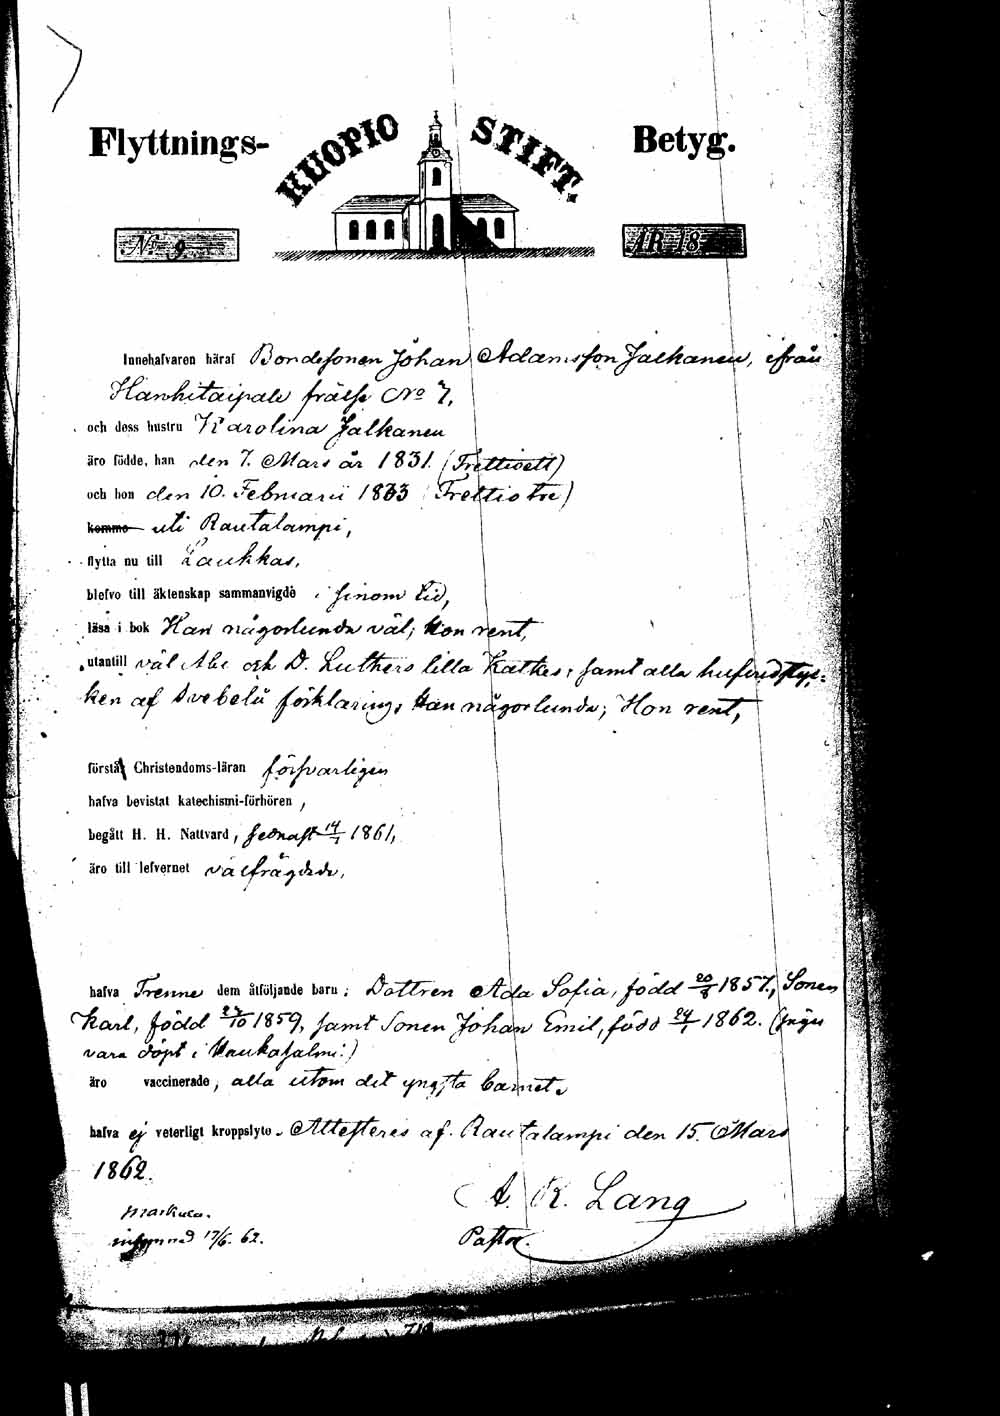 Flyttnings- KUOPIO STIFT. Betyg.
No. 9. ÅR 18
Innehafvaren häraf Bondesonen Johan Adamsson Jalkanen, ifrån
Hanhitaipale frälse No 7,
och dess hustru Karolina Jalkanen
äro födde, han den 7. Mars år 1831. (Trettioett)
och hon den 10. Februarii 1833 (Trettiotre)
komma uti Rautalampi,
flytta nu till Laukkas,
blefvo till äktenskap sammanvigde i sinom tid,
läsa i bok Han någorlunda väl; Hon rent,
utantill väl Abc och D. Luthers lilla Katkes, samt alla hufvudstyc-
ken af Svebelii förklaring, Han någorlunda; Hon rent,
förstå Christendoms-läran försvarligen
hafva bevistat katechismi-förhören,
begått H. H. Nattvard, sednast 14/1 1861,
äro till lefvernet välfrägdade,
hafva Trenne dem åtföljande barn: Dottren Ada Sofia, född 20/8 1857, Sonen
Karl, född 27/10 1859, samt Sonen Johan Emil, född 24/1 1862. (säges
vara döpt i Hankasalmi.)
äro vaccinerade, alla utom det yngsta barnet.
hafva ej veterligt kroppslyte. Attesteras af. Rautalampi den 15. Mars
1862.
A. R. Lang
Pastor.
17/6. 62.